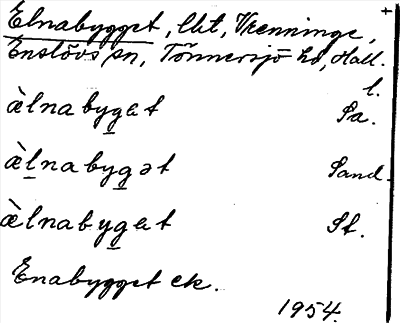 Elnabygget, lht, Vrenninge, +
Enslövs sn, Tönnersjö hd, Hall. l.
æ̀lnabyg̲ət Sa.
æ̀l̲nabyg̲ət Sand.
æ̀lnabyg̲ət St.
Enabygget ek.
1954.